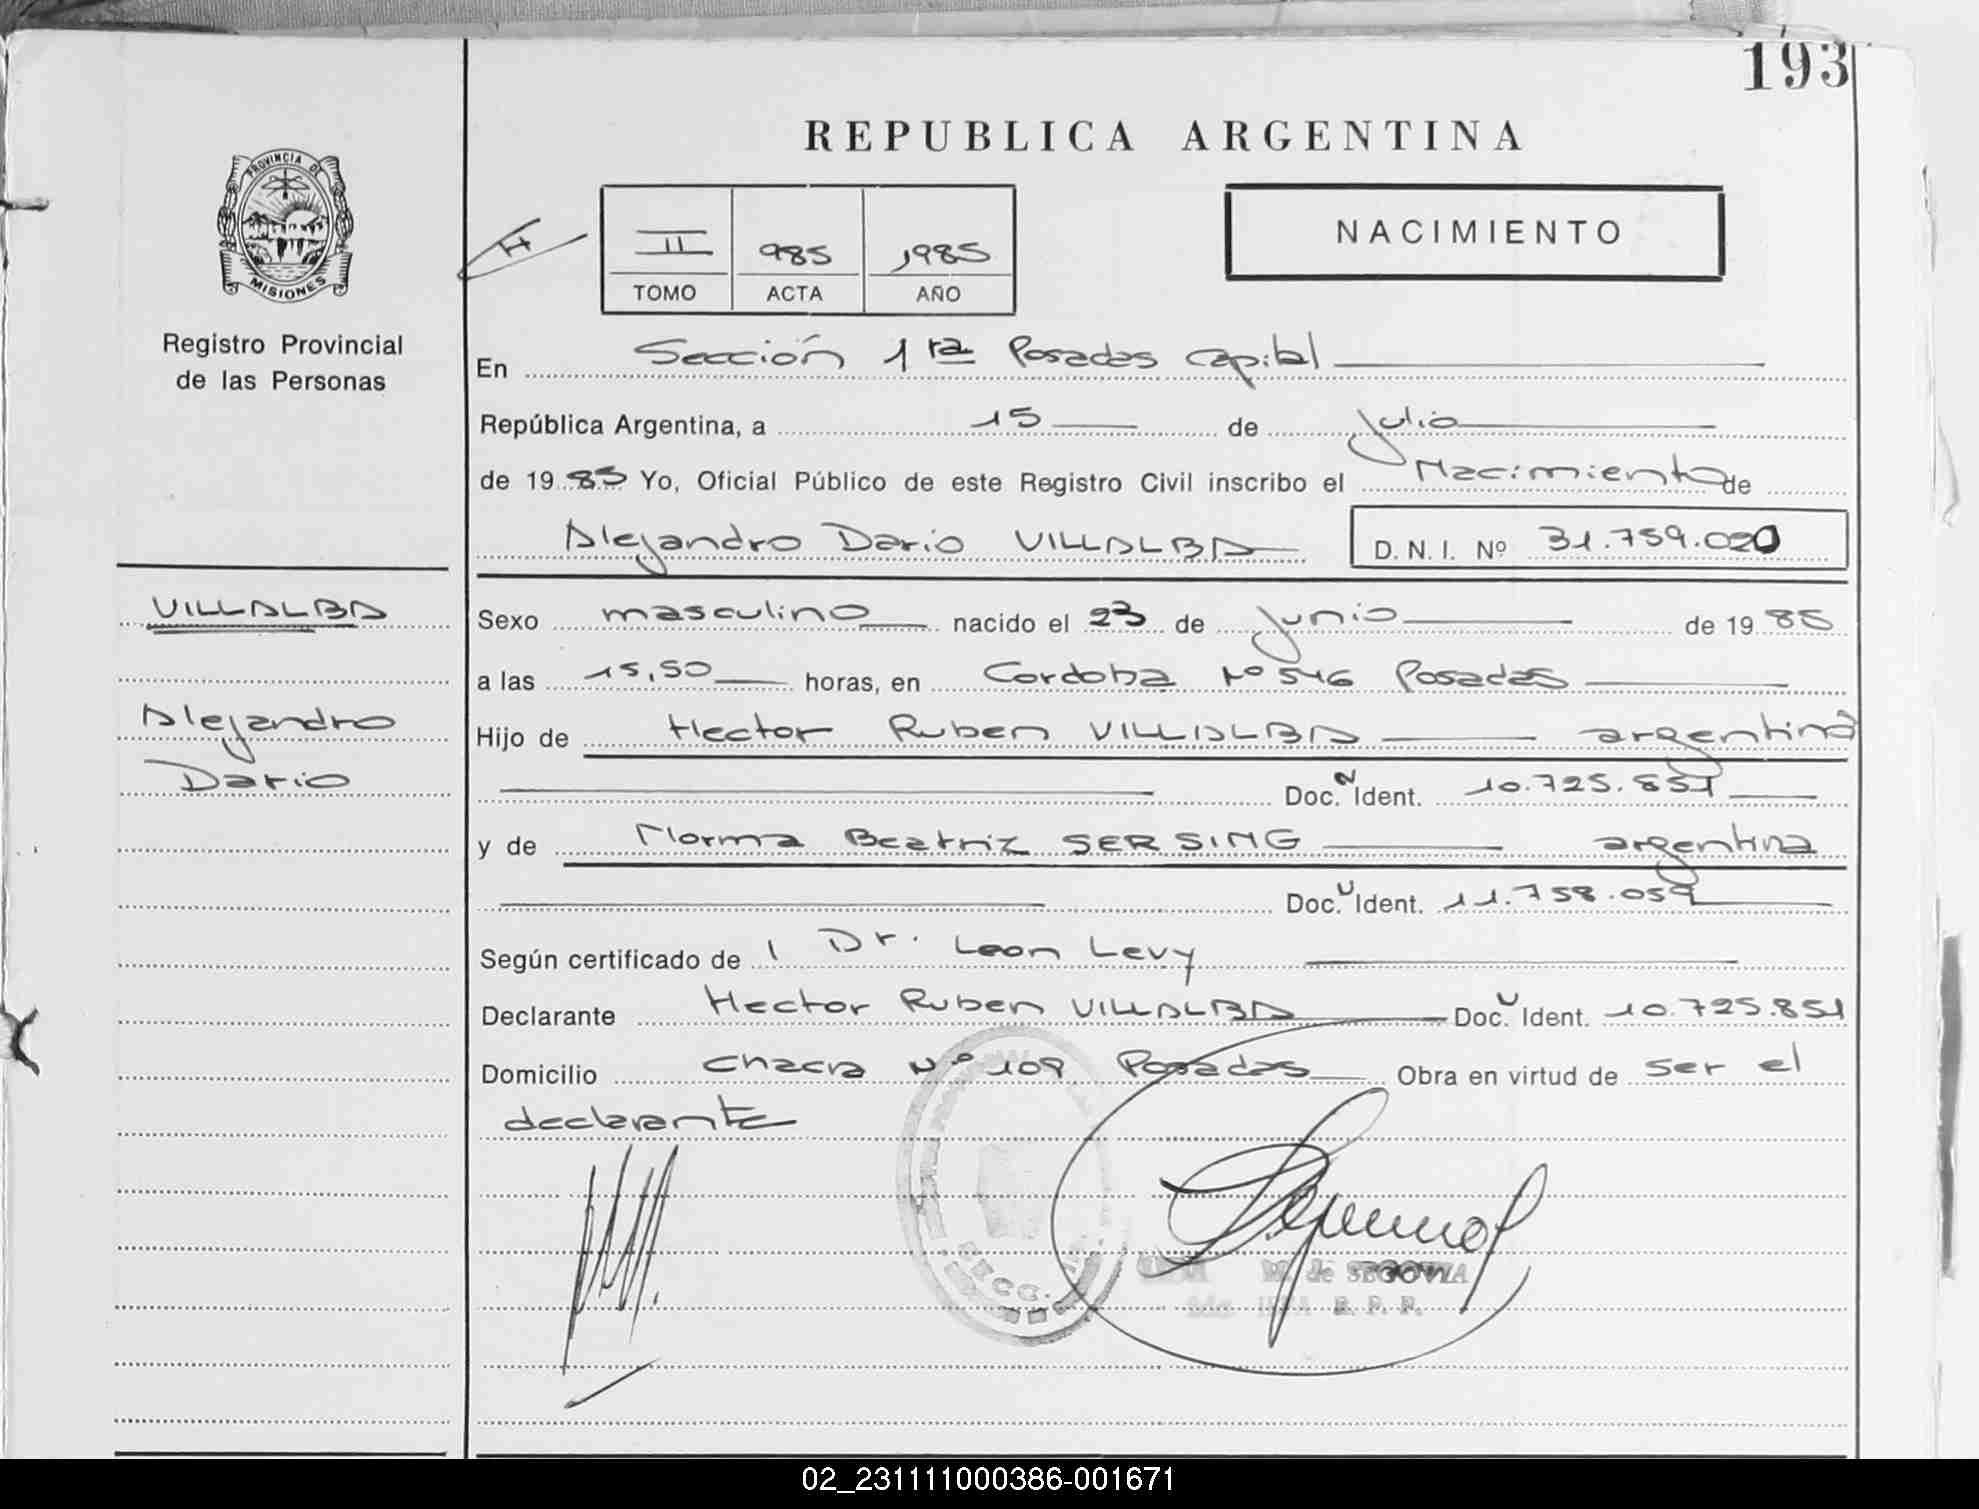 193
REPUBLICA ARGENTINA
PROVINCIA DE
MISIONES
Registro Provincial
de las Personas
II 985 1985
TOMO ACTA AÑO
NACIMIENTO
En Sección 1ra Posadas Capital
República Argentina, a 15 de Julio
de 1985 Yo, Oficial Público de este Registro Civil inscribo el Nacimiento de
Alejandro Dario VILLALBA D.N.I. Nº 31.759.020
VILLALBA
Alejandro
Dario
Sexo masculino nacido el 23 de Junio de 1985
a las 15,50 horas, en Cordoba Nº 546 Posadas
Hijo de Hector Ruben VILLALBA argentino
Doc. N Ident. 10.725.851
y de Norma Beatriz SERSING argentina
Doc. U Ident. 11.758.059
Según certificado de l Dr. Leon Levy
Declarante Hector Ruben VILLALBA Doc. U Ident. 10.725.851
Domicilio Chacra Nº 109 Posadas Obra en virtud de ser el
declarante
SECC.
M. de SEGOVIA
R. P. P.
02_231111000386-001671